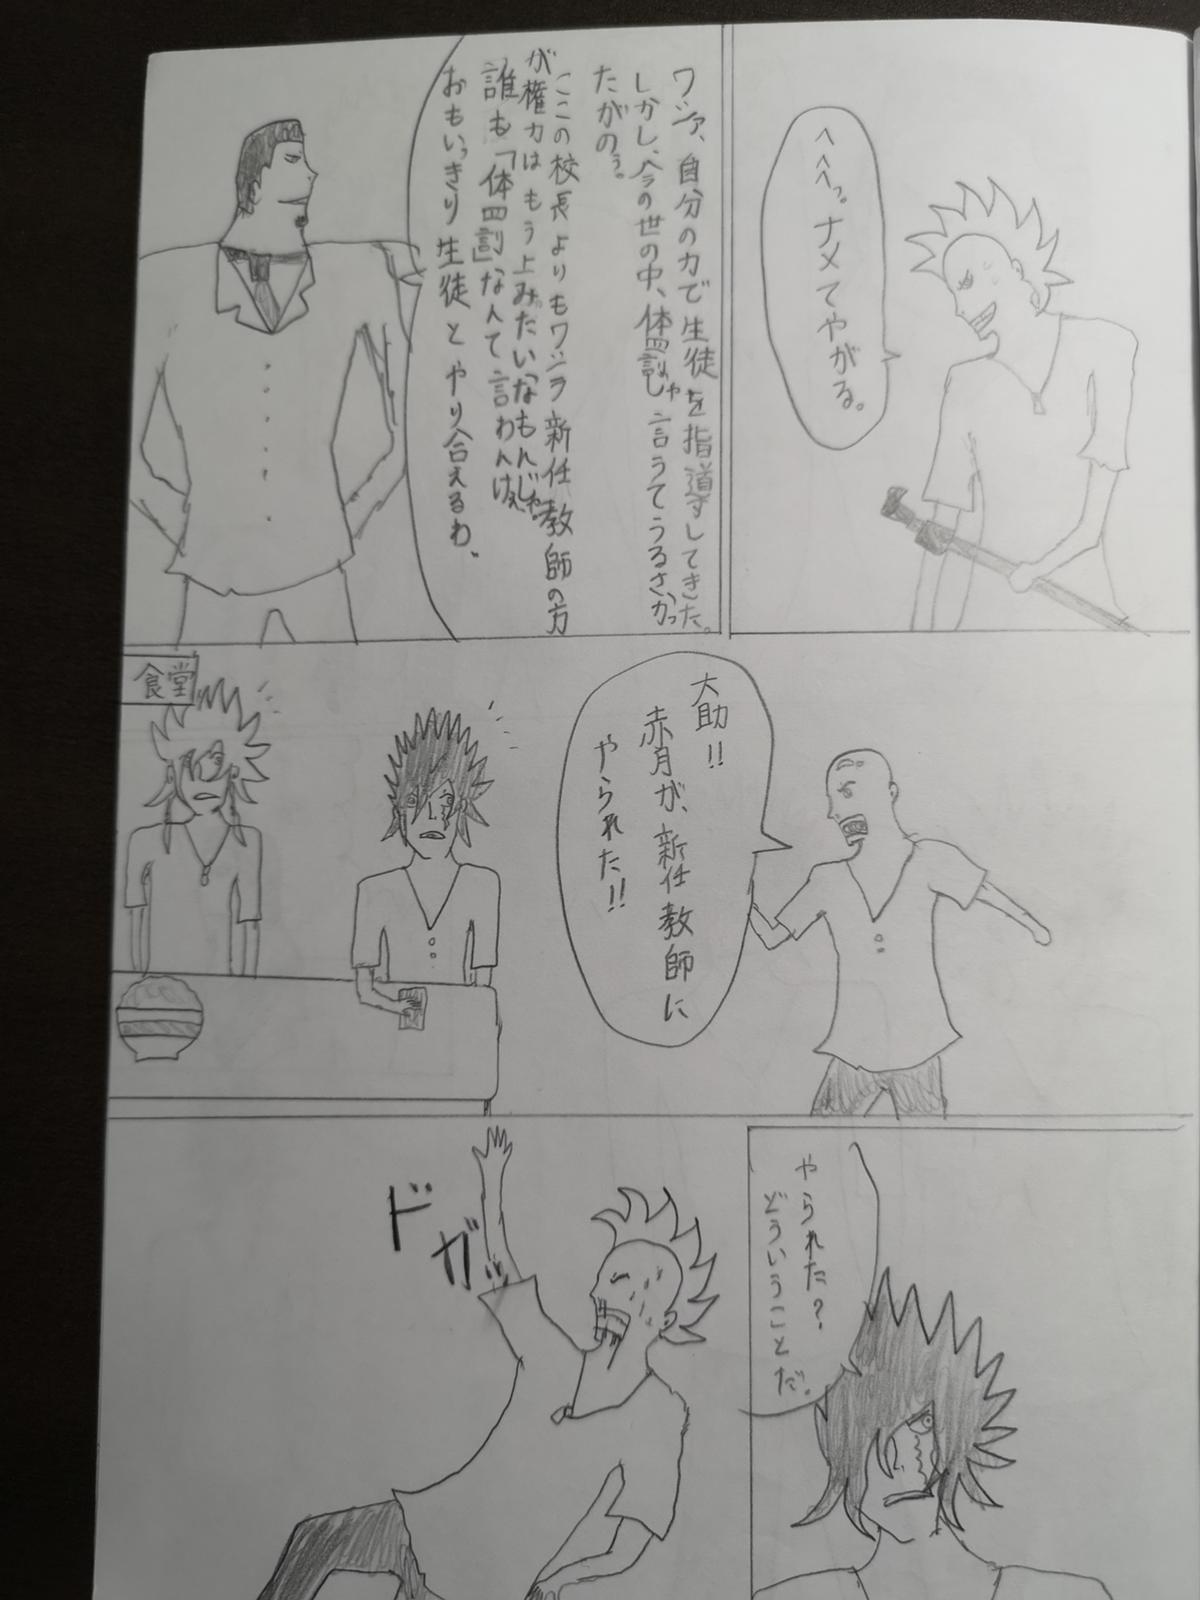 へへへっ。ナメてやがる。
ワシァ、自分の力で生徒を指導してきた。
しかし、今の世の中、体罰じゃ言うてうるさかっ
たがのぅ。
ここの校長よりもワシラ新任教師の方
が権力はもう上みたいなもんじゃ。
誰も「体罰」なんて言わんけぇ
おもいっきり生徒とやり合えるわ、
食堂
大助!!
赤月が、新任教師に
やられた!!
やられた?
どういうことだ。
ドガッ